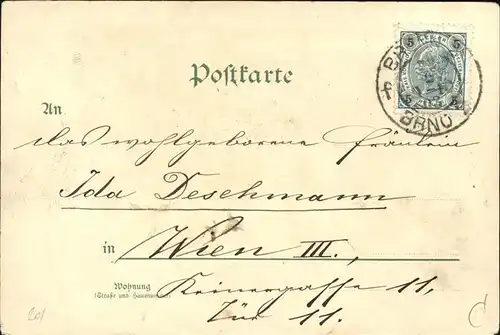 5 5
BRNO
Postkarte
An
das wohlgeborene Fräulein
Ida Deschmann
in Wien III.,
Wohnung
(Straße und Hausnummer)
Keinergasse 11,
Tür 11.